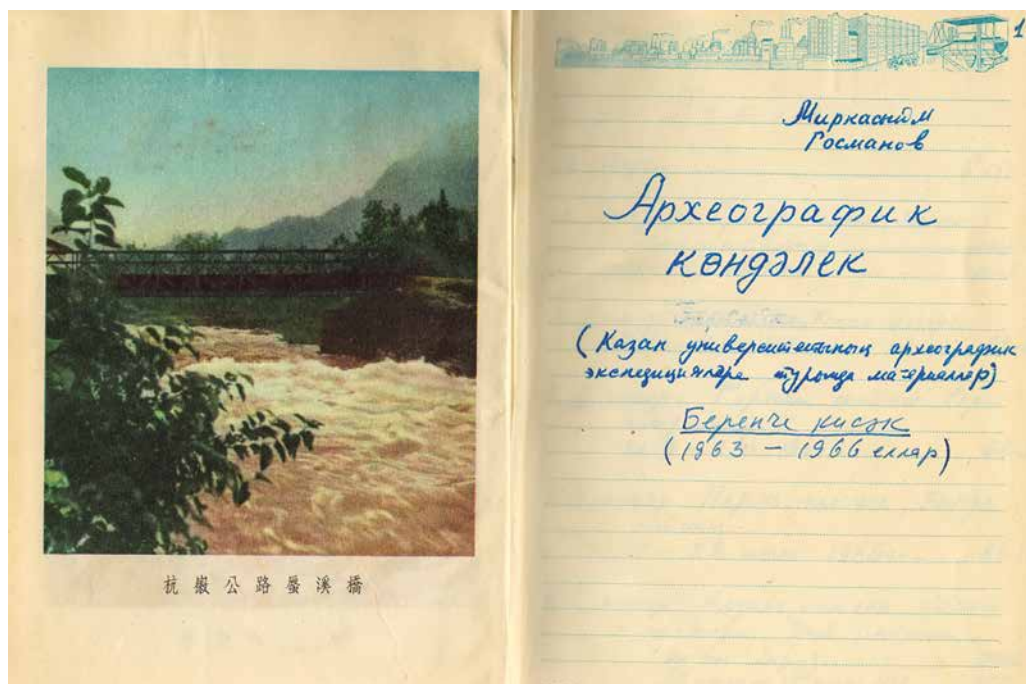 杭徽公路蜃溪橋
1
Миркасыйм
Госманов
Археографик
көндәлек
(Казан университетының археографик
экспедицияләре турында материаллар)
Беренче кисәк
(1963 – 1966 еллар)